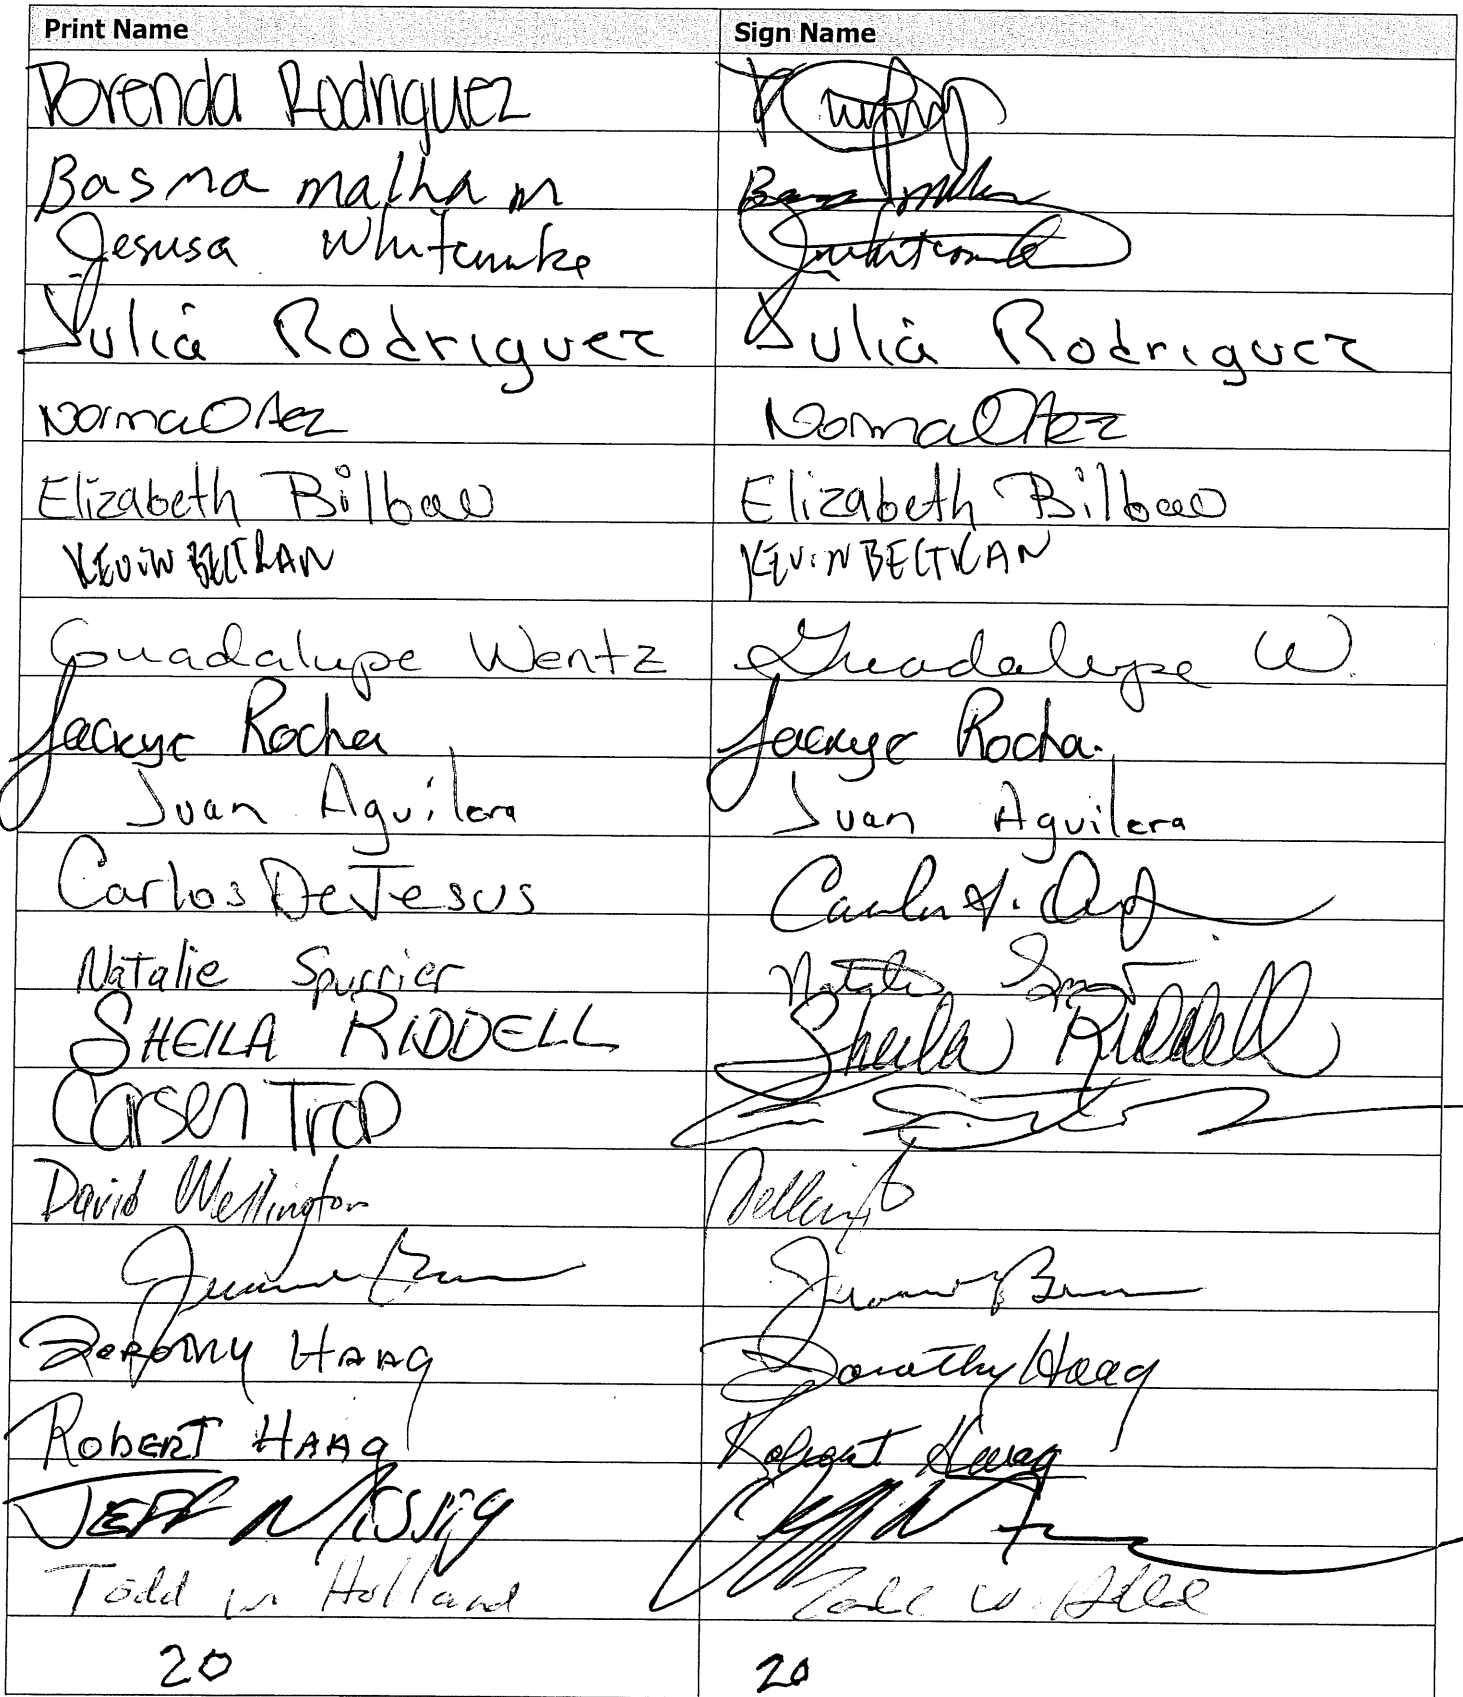 Print Name Sign Name
Brenda Rodriguez
Basma malham
Jesusa
Julia Rodriguez Julia Rodriguez
Norma Ortez Norma Ortez
Elizabeth Bilbao Elizabeth Bilbao
KEVIN BELTRAN KEVIN BELTRAN
Guadalupe Wentz Guadalupe W.
Jackye Rocha Jackye Rocha.
Juan Aguilera Juan Aguilera
Carlos DeJesus
Natalie Spurrier Natalie
SHEILA RIDDELL Sheila Riddell
Carsen Trap
David Wellington
DOROTHY HAAG Dorothy Haag
ROBERT HAAG Robert Haag
JEFF
Todd W Holland Todd W.
20 20